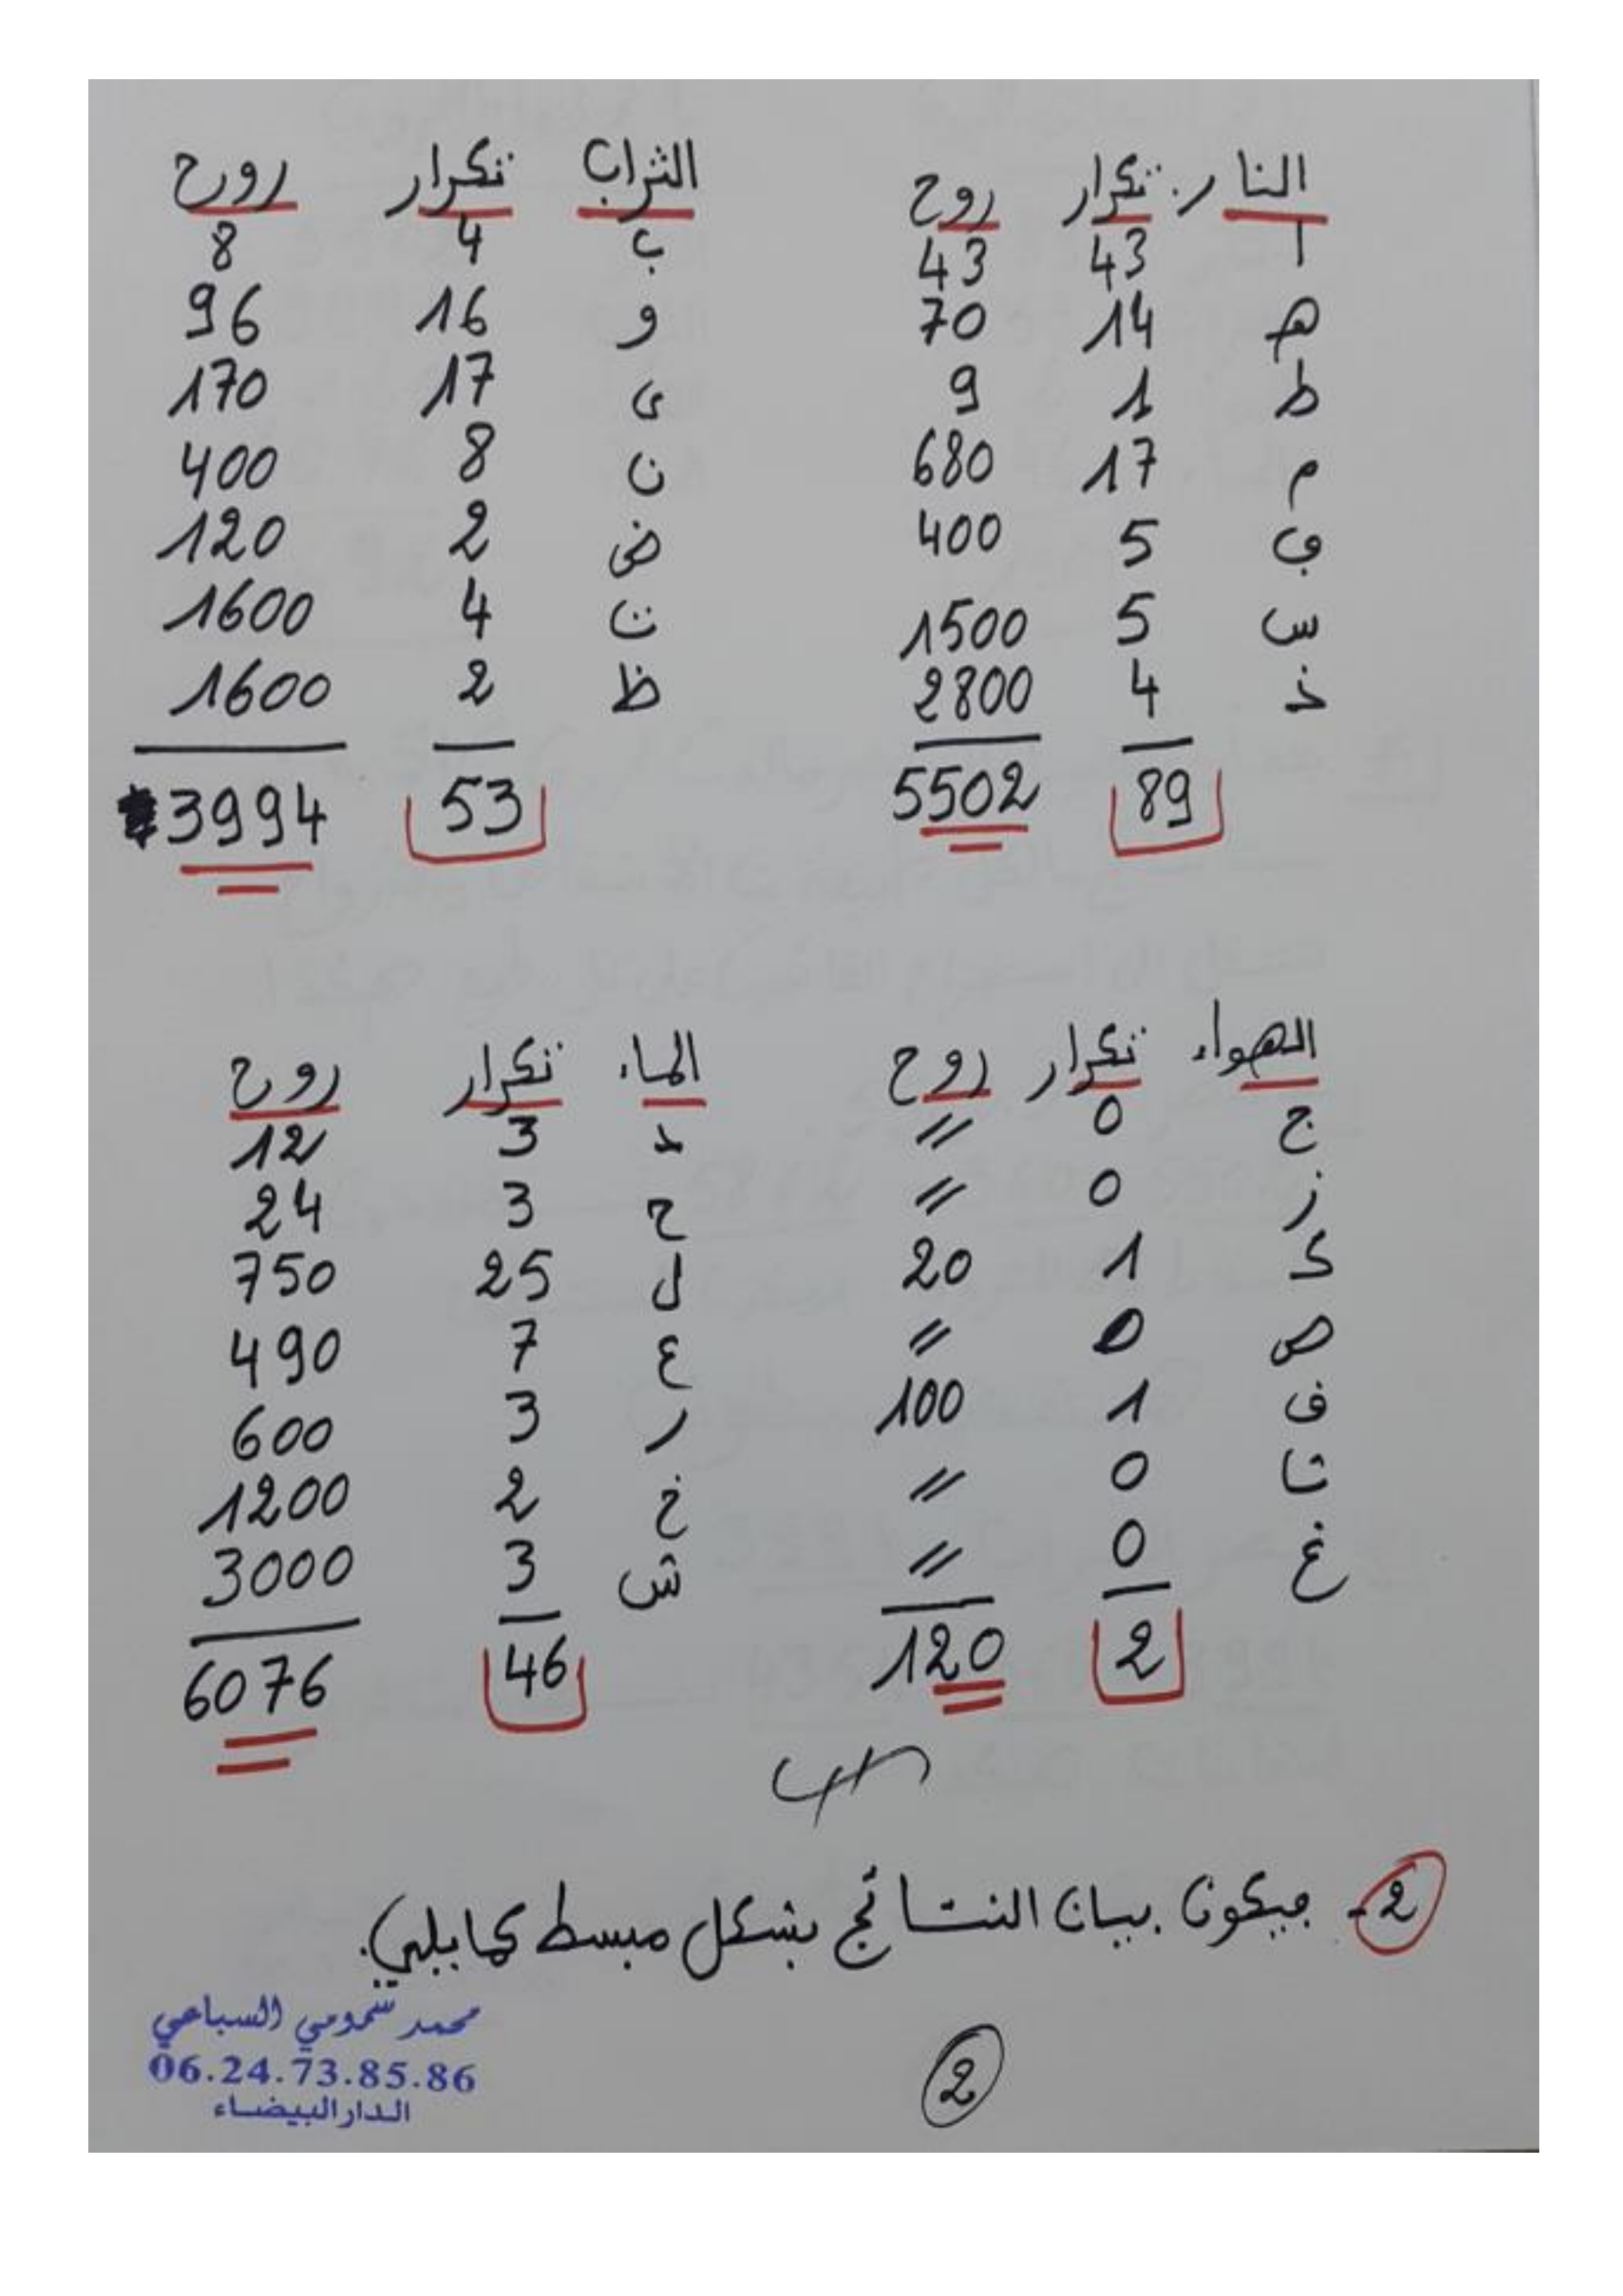 النار تكرار روح
ا 43 43
ه 14 70
ط 1 9
م 17 680
ف 5 400
س 5 1500
ذ 4 2800
89 5502
التراب تكرار روح
ب 4 8
و 16 96
ى 17 170
ن 8 400
ض 2 120
ت 4 1600
ظ 2 1600
53 3994
الهواء تكرار روح
ج 0 //
ز 0 //
ک 1 20
ص 0 //
ف 1 100
ثا 0 //
غ 0 //
2 120
الماء تكرار روح
د 3 12
ح 3 24
ل 25 750
ع 7 490
ر 3 600
خ 2 1200
ش 3 3000
46 6076
2- فيكون بيان النتائج بشكل مبسط كما يلي.
محمد سمومي السباعي
06.24.73.85.86
الدار البيضاء
2